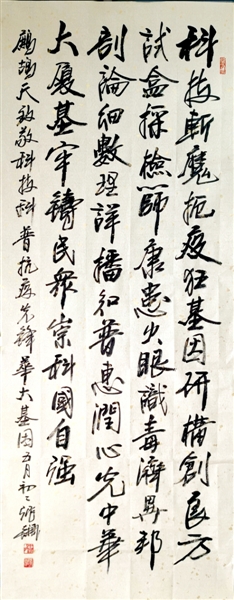 科技斬魔抗疫狂基因研構創良方
試盒採檢篩康患火眼識毒濟異邦
剖論細數理詳播知普惠潤心光中華
大廈基牢鑄民眾崇科國自强
鷓鴣天致敬科技科普抗疫先鋒華大基因五月初二